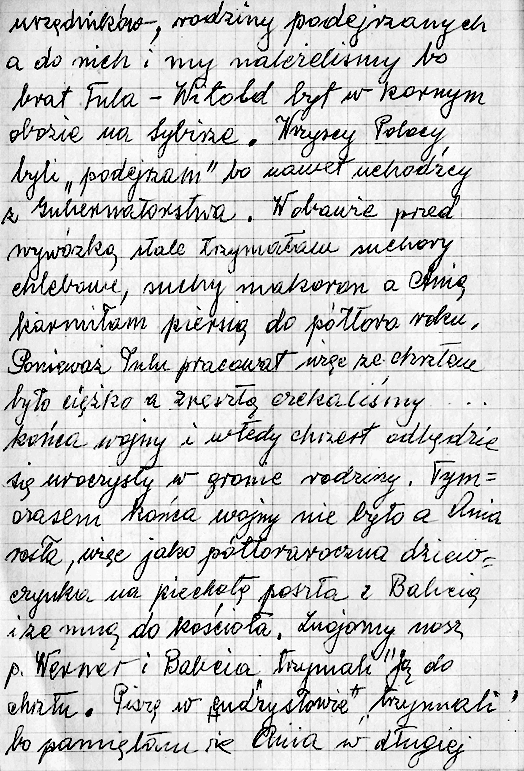 urzędników, rodziny podejrzanych
a do nich i my należeliśmy bo
brat Tula – Witold był w karnym
obozie na Sybirze. Wszyscy Polacy
byli „podejrzani" bo nawet uchodźcy
z Gubernatorstwa. W obawie przed
wywózką stale trzymałam suchary
chlebowe, suchy makaron a Anię
karmiłam piersią do półtora roku.
Ponieważ Tulu pracował więc ze chrztem
było ciężko a zresztą czekaliśmy ...
końca wojny i wtedy chrzest odbędzie
się uroczysty w gronie rodziny. Tym=
czasem końca wojny nie było a Ania
rosła, więc jako półtoraroczna dziew=
czynka na piechotę poszła z Babcią
i ze mną do kościoła. Znajomy nasz
p. Werner i Babcia trzymali "ją do
chrztu. Piszę w cudzysłowie "trzymali"
bo pamiętam że Ania w długiej